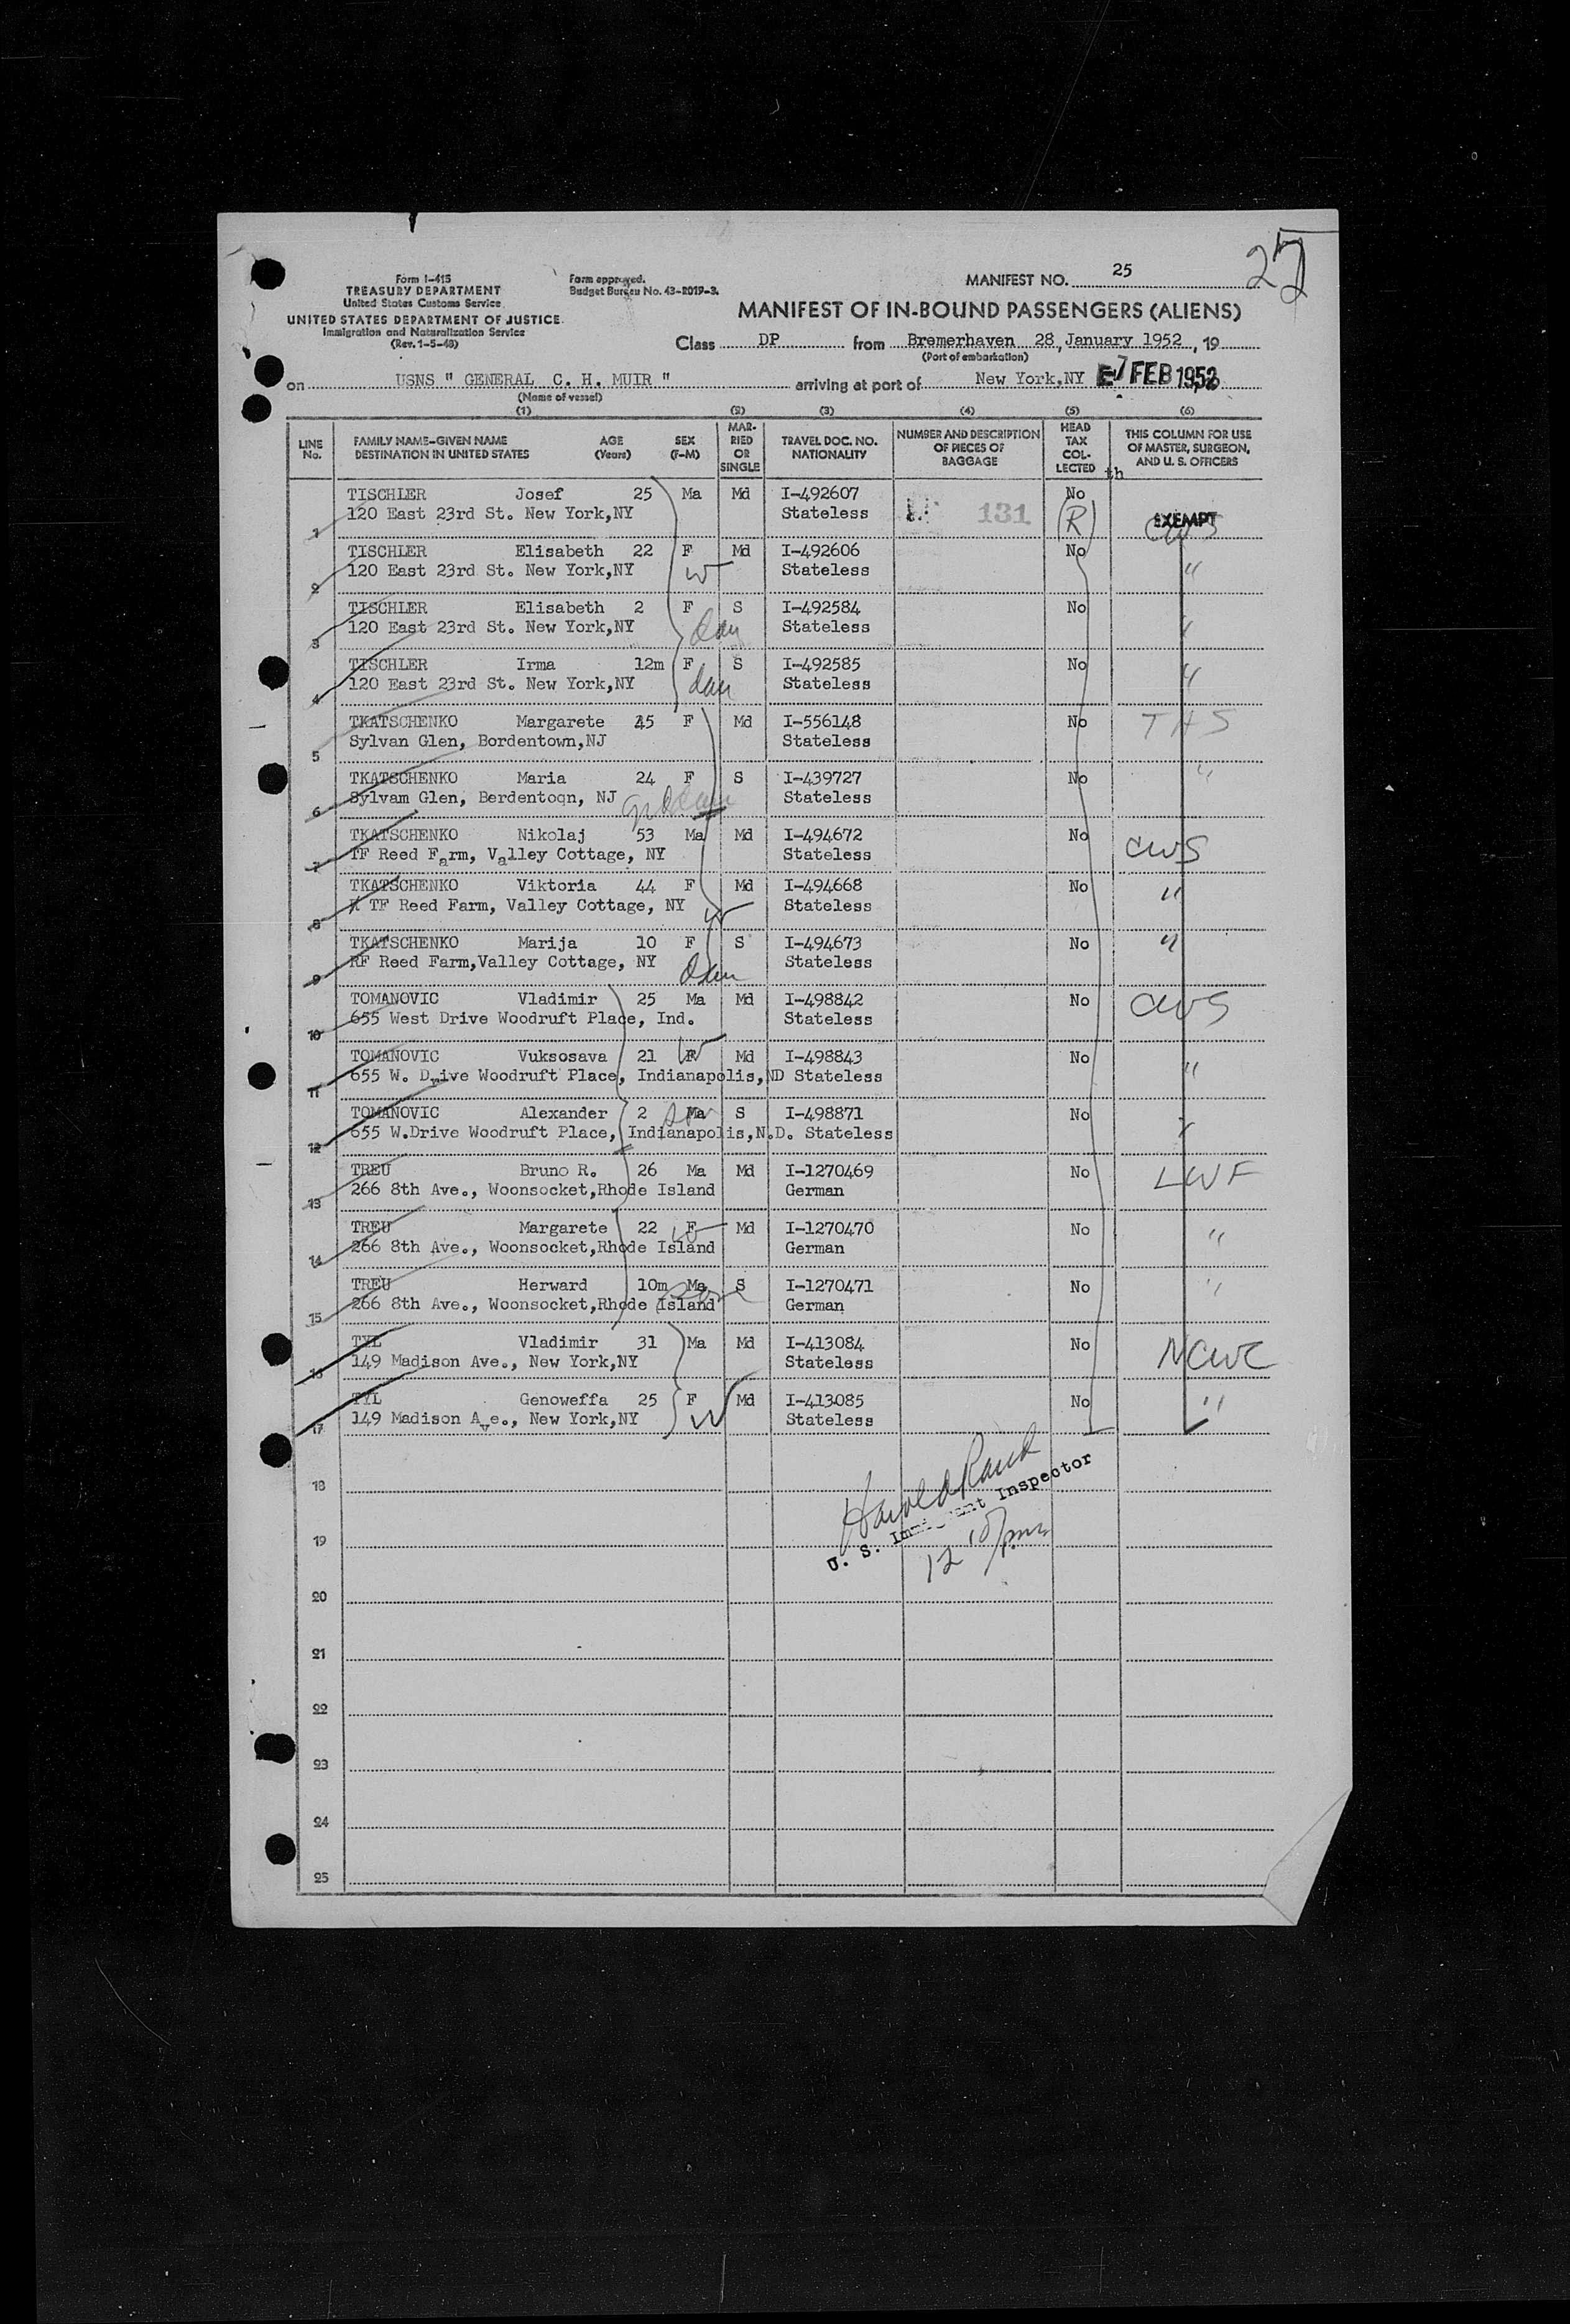 25
Form I-415
TREASURY DEPARTMENT
United States Customs Service
UNITED STATES DEPARTMENT OF JUSTICE
Immigration and Naturalization Service
(Rev. 1-5-48)
Form approved.
Budget Bureau No. 43-R019-3.
MANIFEST NO. 25
MANIFEST OF IN-BOUND PASSENGERS (ALIENS)
Class DP from Bremerhaven 28, January 1952, 19
(Port of embarkation)
on USNS " GENERAL C. H. MUIR " arriving at port of New York,NY 7 FEB 1952
(Name of vessel)
(1) (2) (3) (4) (5) (6)
LINE No. FAMILY NAME–GIVEN NAME DESTINATION IN UNITED STATES AGE (Years) SEX (F-M) MARRIED OR SINGLE TRAVEL DOC. NO. NATIONALITY NUMBER AND DESCRIPTION OF PIECES OF BAGGAGE HEAD TAX COLLECTED THIS COLUMN FOR USE OF MASTER, SURGEON, AND U. S. OFFICERS
th
1 TISCHLER Josef 25 Ma Md I-492607 131 No (R) EXEMPT CWS
120 East 23rd St. New York,NY Stateless
2 TISCHLER Elisabeth 22 F W Md I-492606 No "
120 East 23rd St. New York,NY Stateless
3 TISCHLER Elisabeth 2 F dau S I-492584 No "
120 East 23rd St. New York,NY Stateless
4 TISCHLER Irma 12m F dau S I-492585 No "
120 East 23rd St. New York,NY Stateless
5 TKATSCHENKO Margarete 45 F Md I-556148 No THS
Sylvan Glen, Bordentown,NJ Stateless
6 TKATSCHENKO Maria 24 F S I-439727 No "
Sylvam Glen, Berdentoqn, NJ Stateless
7 TKATSCHENKO Nikolaj 53 Ma Md I-494672 No CWS
TF Reed Farm, Valley Cottage, NY Stateless
8 TKATSCHENKO Viktoria 44 F W Md I-494668 No "
X TF Reed Farm, Valley Cottage, NY Stateless
9 TKATSCHENKO Marija 10 F dau S I-494673 No "
RF Reed Farm,Valley Cottage, NY Stateless
10 TOMANOVIC Vladimir 25 Ma Md I-498842 No CWS
655 West Drive Woodruft Place, Ind. Stateless
11 TOMANOVIC Vuksosava 21 F W Md I-498843 No "
655 W. Drive Woodruft Place, Indianapolis,ND Stateless
12 TOMANOVIC Alexander 2 Ma son S I-498871 No "
655 W.Drive Woodruft Place, Indianapolis,N.D. Stateless
13 TREU Bruno R. 26 Ma Md I-1270469 No LWF
266 8th Ave., Woonsocket,Rhode Island German
14 TREU Margarete 22 F W Md I-1270470 No "
266 8th Ave., Woonsocket,Rhode Island German
15 TREU Herward 10m Ma son S I-1270471 No "
266 8th Ave., Woonsocket,Rhode Island German
16 TYL Vladimir 31 Ma Md I-413084 No NCWC
149 Madison Ave., New York,NY Stateless
17 TYL Genoweffa 25 F W Md I-413085 No "
149 Madison Ave., New York,NY Stateless
18
Harold Rand
U. S. Immigrant Inspector
19
12 10/pm
20
21
22
23
24
25